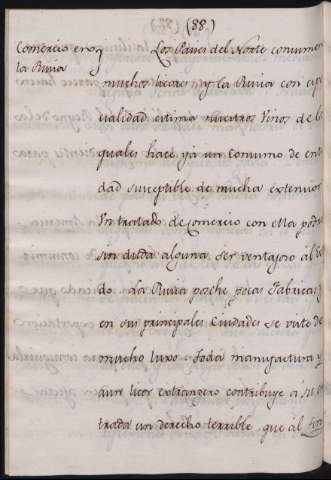 (88.)
Comercio con
la Rusia
Los Paises del Norte consumen
muchos licores y la Rusia con espe
cialidad estima nuestros Vinos de los
quales hace yá un consumo de enti
dad susceptible de mucha extension
Un tratado de Comercio con ella podria
sin duda alguna ser ventajoso al
do. La Rusia posehe pocas Fabricas y
en sus principales Ciudades se viste de
mucho luxo. Toda manufactura y
aun licor extrangero contribuye á su en
trada un derecho terrible, que al